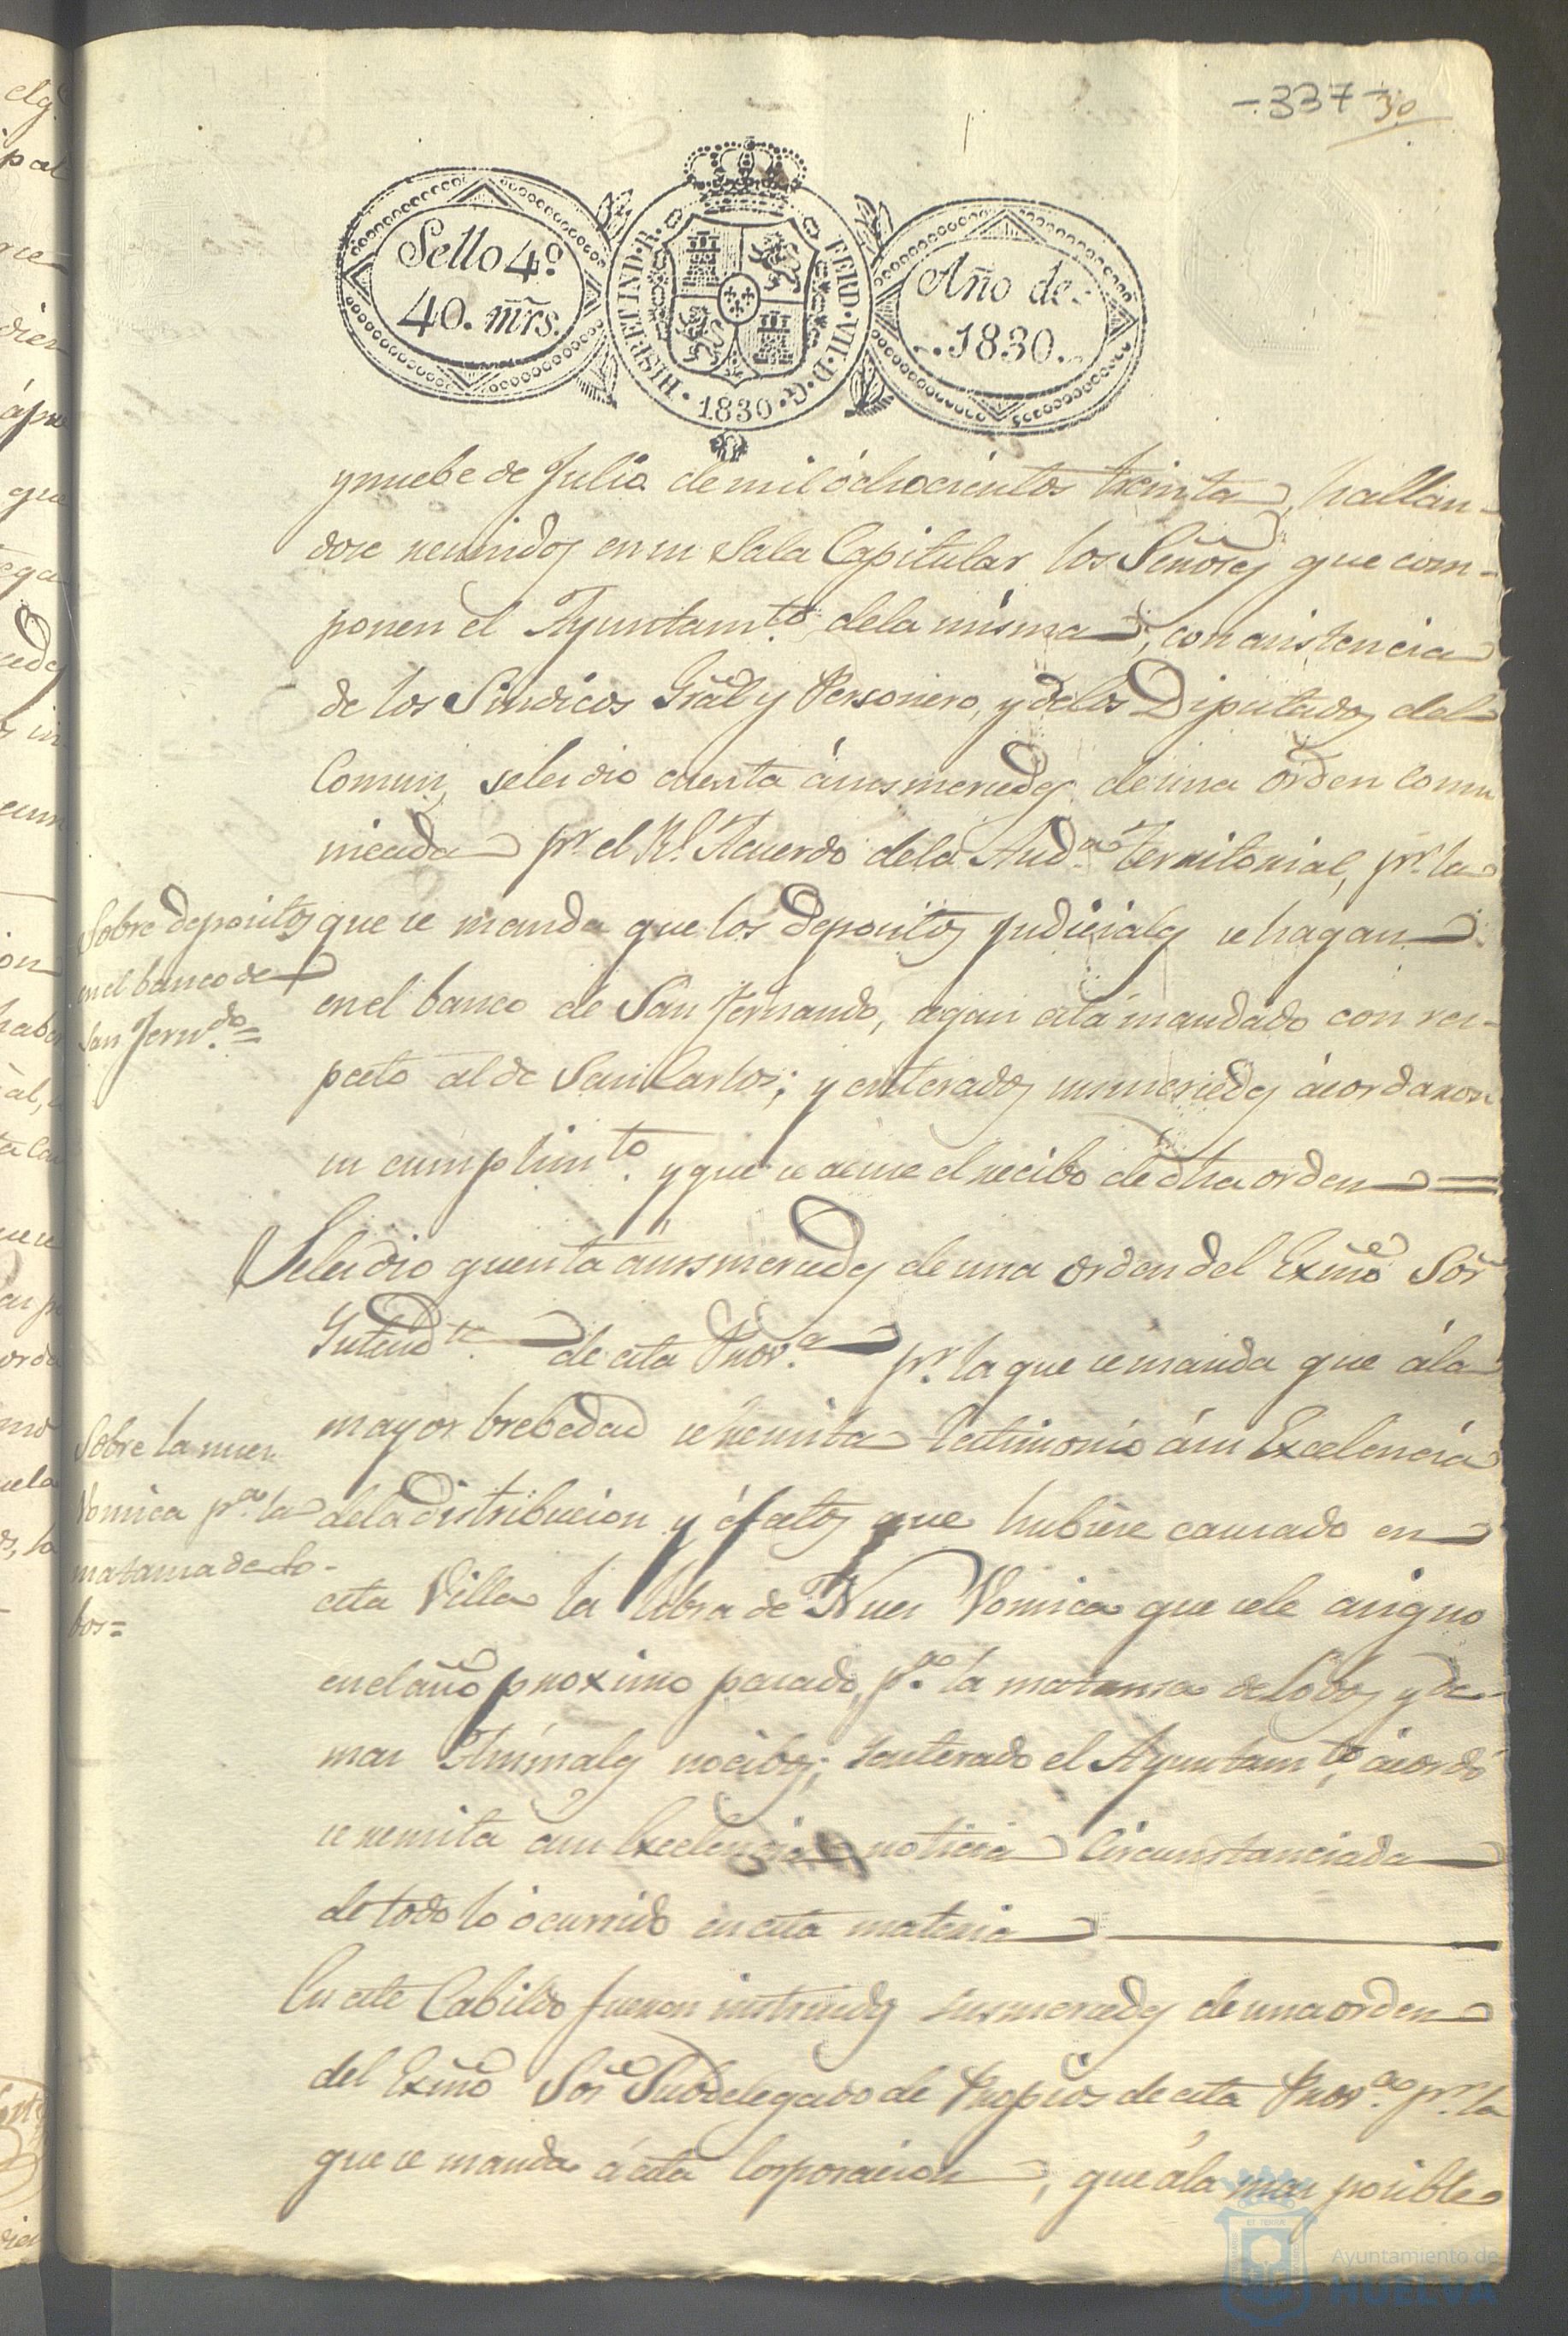 -337-
30
Sello 4º
40. mrs.
HISP. ET IND. R. FERD. VII. D. G. 1830
Año de
1830.
y nuebe de Julio de mil óchocientos treinta, hallan-
dose reunidos en su Sala Capitular los Señores que com-
ponen el Ayuntam.to dela misma, con asistencia
de los Sindicos Gral y Personero, y delos Diputados del
Comun, seles dio cuenta ásus mercedes de una orden comu
nicada pr. el Rl. Acuerdo dela Aud.a territorial, pr. la
Sobre depositos
en el banco de
San Fern.do =
que se manda que los depositos judiciales se hagan
en el banco de San Fernando, segun está mandado con res-
pecto al de San Carlos; y enterados sus mercedes ácordaron
su cumplim.to y que se acuse el recibo de dha orden =
Seles dio quenta ásus mercedes de una orden del Exmo Sor
Intend.te de esta Prov.a pr. la que se manda que ála
mayor brebedad se remita testimonio ásu Excelencia
Sobre la nuez
Vomica p.a la
matansa de lo-
bos =
dela distribucion y éfectos que hubiese causado en
esta Villa la libra de Nues Vomica que sele asigno
en el año proximo pasado, p.a la matansa de Lobos y de-
mas Animales nocibos; y enterado el Ayuntam.to ácordó
se remita ásu Excelencia noticia circunstanciada
de todo lo ócurrido en esta materia
En este Cabildo fueron instruidos sus mercedes de una orden
del Exmo Sor Subdelegado de Propios de esta Prov.a pr. la
que se manda á esta Corporacion, que ála mas posible
Ayuntamiento de
HUELVA